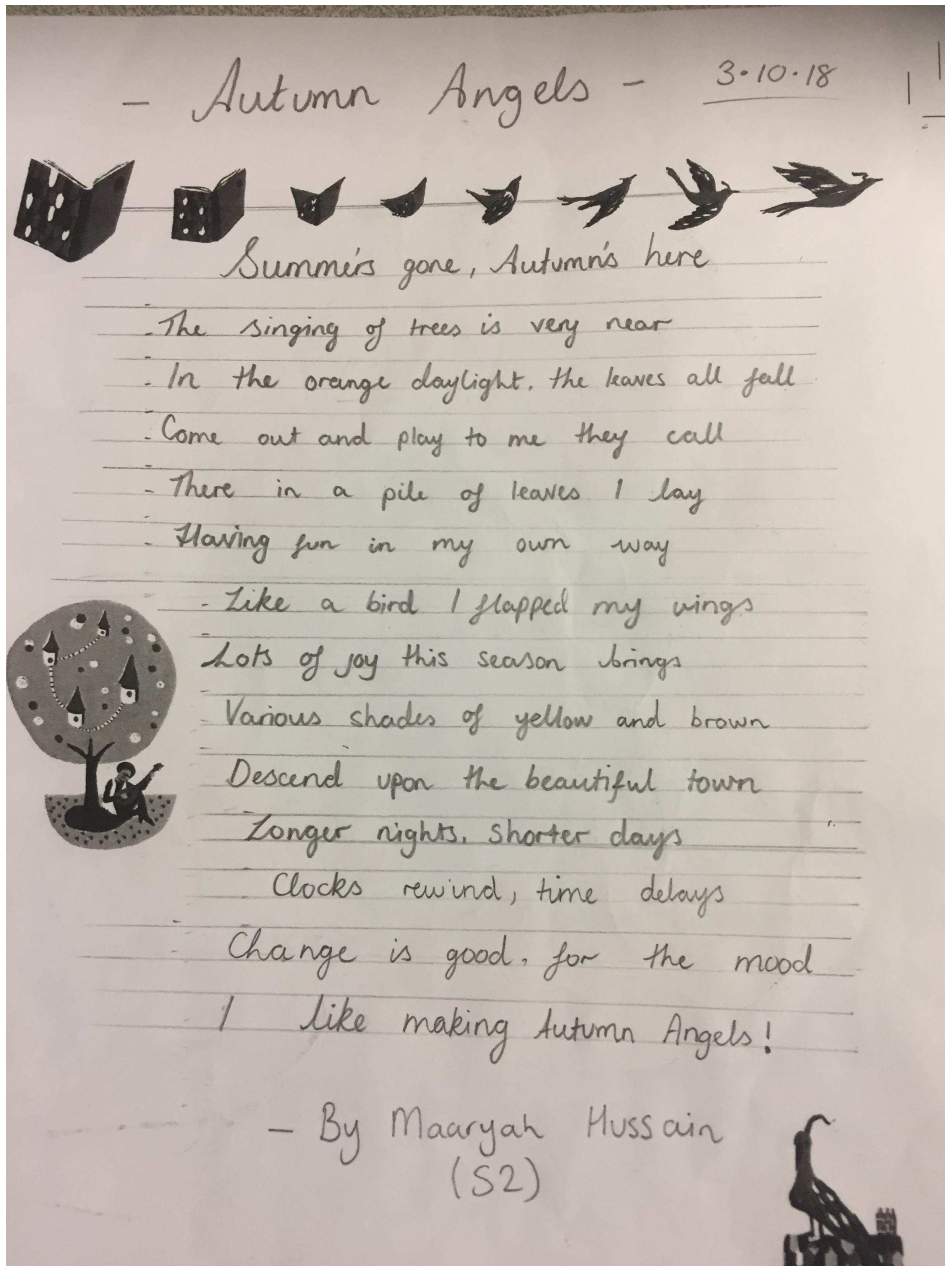 - Autumn Angels -
3.10.18
Summer's gone, Autumn's here
The singing of trees is very near
In the orange daylight, the leaves all fall
Come out and play to me they call
There in a pile of leaves I lay
Having fun in my own way
Like a bird I flapped my wings
Lots of joy this season brings
Various shades of yellow and brown
Descend upon the beautiful town
Longer nights, shorter days
Clocks rewind, time delays
Change is good, for the mood
I like making Autumn Angels!
- By Maaryah Hussain
(S2)